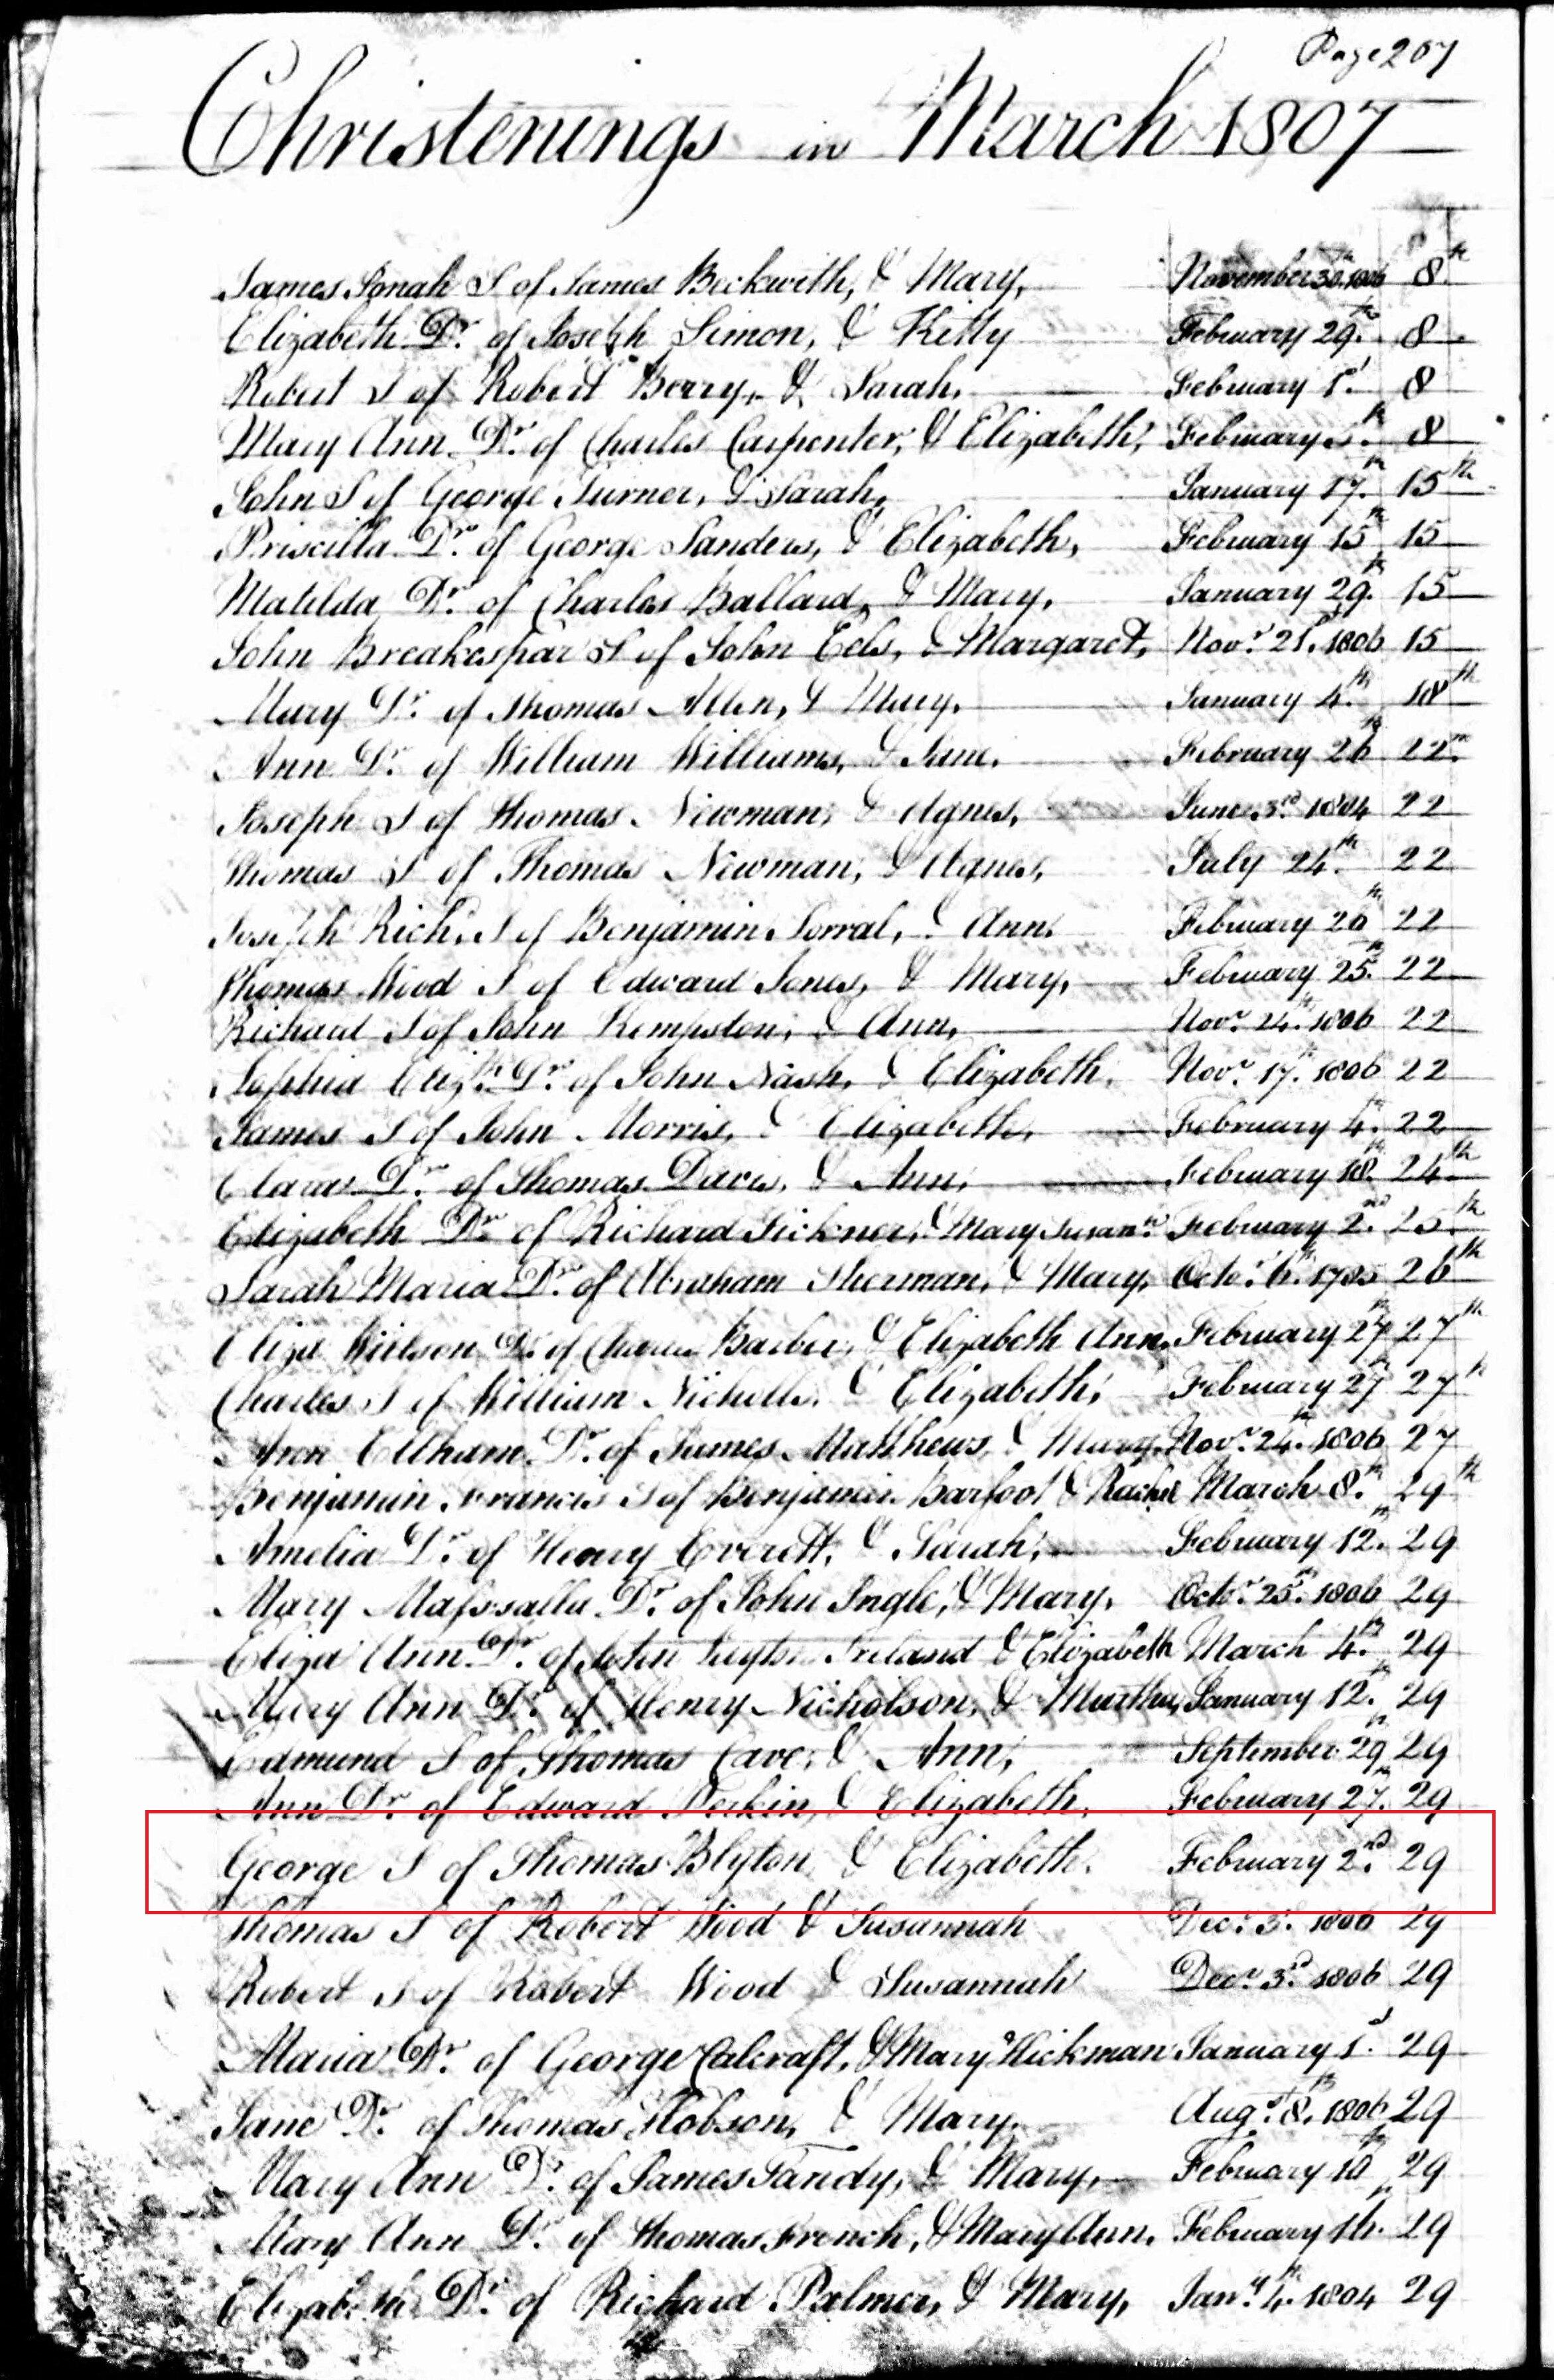 Page 207
Christenings in March 1807
James Jonah S of James Beckwith, & Mary, November 30th 1806 8th
Elizabeth Dr. of Joseph Simon, & Kitty February 29th. 8
Robert S of Robert Berry, & Sarah, February 1st. 8
Mary Ann Dr. of Charles Carpenter, & Elizabeth, February th. 8
John S of George Turner, & Sarah, January 17th. 15th
Priscilla Dr. of George Sanders, & Elizabeth, February 15th 15
Matilda Dr. of Charles Ballard, & Mary, January 29th. 15
John Breakespar S of John Eels, & Margaret, Novr. 21st. 1806 15
Mary Dr. of Thomas Allen, & Mary, January 4th. 18th
Ann Dr. of William Williams, & Jane, February 26th 22nd.
Joseph S of Thomas Newman, & Agnes, June 3rd 1804 22
Thomas S of Thomas Newman, & Agnes, July 24th. 22
Joseph Richd. S of Benjamin Sorral, & Ann, February 26th 22
Thomas Wood S of Edward Jones, & Mary, February 25th. 22
Richard S of John Kempston, & Ann, Novr. 24th. 1806 22
Sophia Elizth. Dr. of John Nash, & Elizabeth, Novr. 17th. 1806 22
James S of John Morris, & Elizabeth, February 4th. 22
Clara Dr. of Thomas Davis, & Ann, February 18th. 24th
Elizabeth Dr. of Richard Tickner, & Mary Susanh. February 2nd. 25th.
Sarah Maria Dr. of Abraham Sherman, & Mary, Octr. 6th. 1785 26th
Eliza Wilson Dr. of Charles Barber, & Elizabeth Ann, February 27th 27th
Charles S of William Nicholls, & Elizabeth, February 27th 27th
Ann Eltham Dr. of James Matthews, & Mary, Novr. 24th. 1806 27
Benjamin Francis S of Benjamin Barfoot & Rachel March 8th. 29th
Amelia Dr. of Henry Everett, & Sarah, February 12th. 29
Mary Massalla Dr. of John Ingle, & Mary, Octr. 25th. 1806 29
Eliza Ann Dr. of John Ireland & Elizabeth March 4th. 29
Mary Ann Dr. of Henry Nicholson, & Martha, January 12th. 29
Edmund S of Thomas Cave, & Ann, September 29th 29
Ann Dr. of Edward Perkin, & Elizabeth, February 27th. 29
George S of Thomas Blyton, & Elizabeth, February 2nd. 29
Thomas S of Robert Wood & Susannah Decr. 3d. 1806 29
Robert S of Robert Wood & Susannah Decr. 3d. 1806 29
Maria Dr. of George Calcraft, & Mary Hickman January 1st. 29
Jane Dr. of Thomas Hobson, & Mary, Augst. 8th. 1806 29
Mary Ann Dr. of James Tandy, & Mary, February 10th 29
Mary Ann Dr. of Thomas French, & Mary Ann, February 16th. 29
Elizabeth Dr. of Richard Palmer, & Mary, Jany. 4th. 1804 29